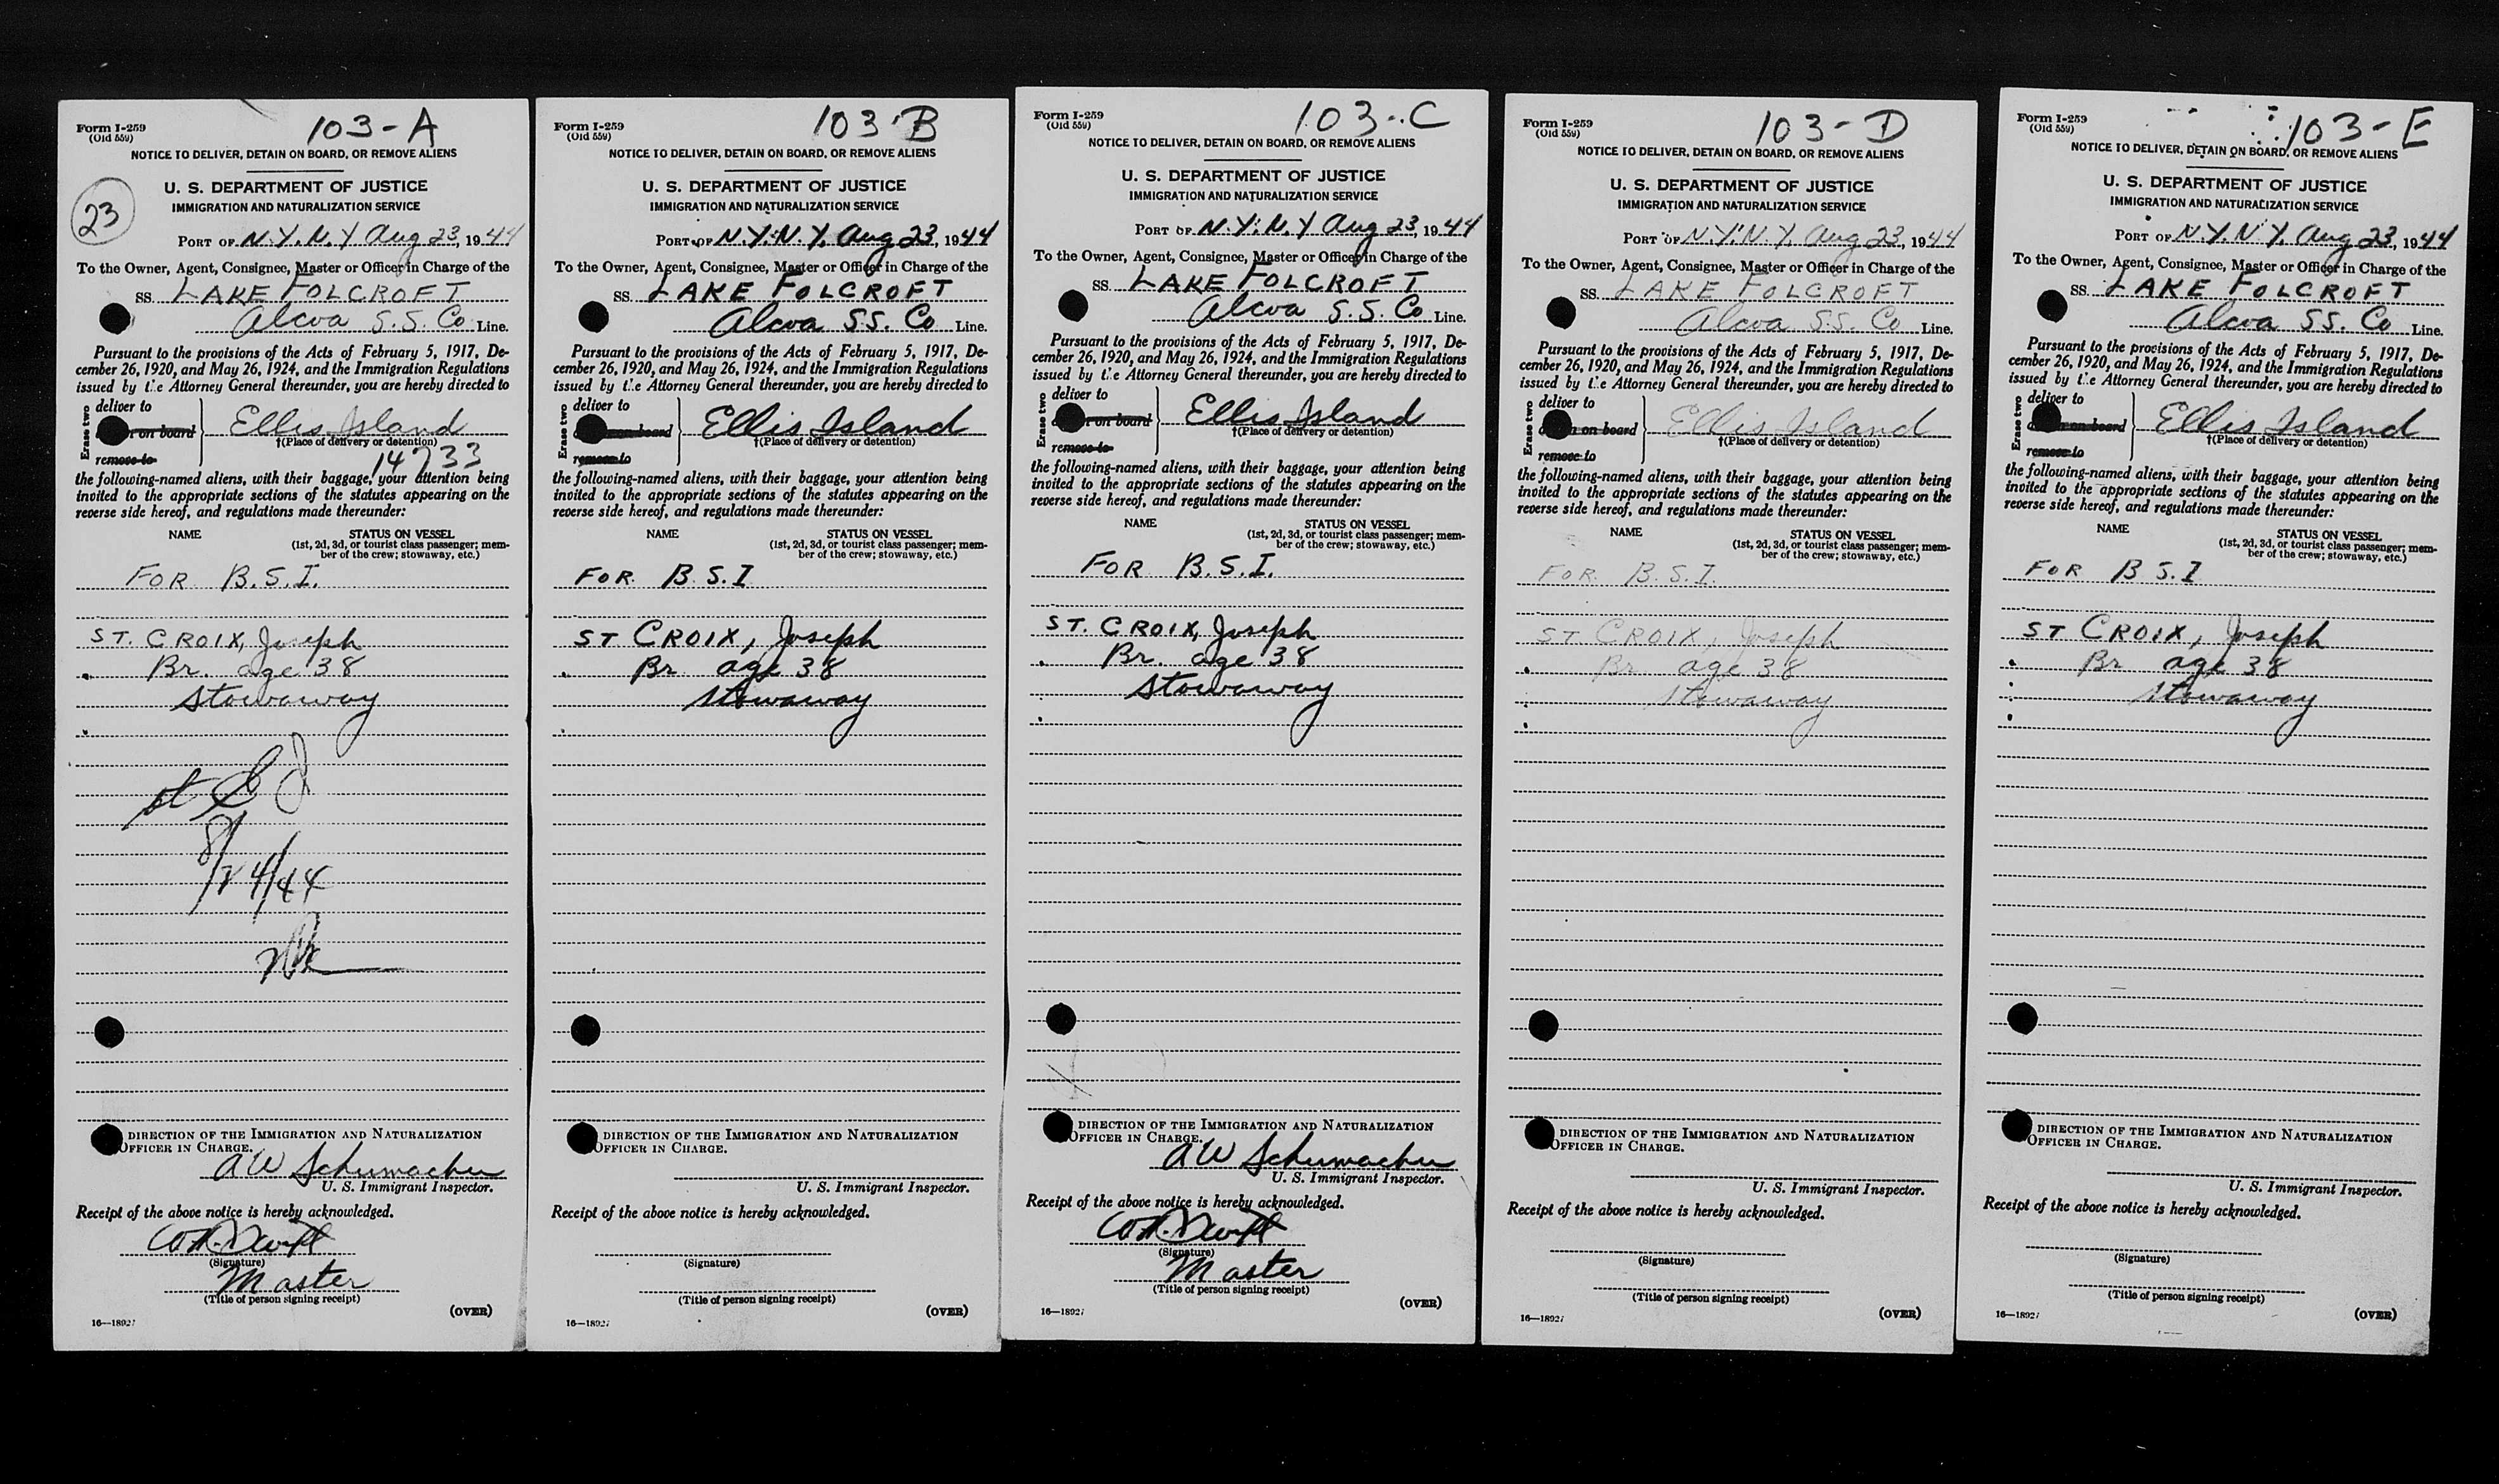 103-A
Form I-259
(Old 559)
NOTICE TO DELIVER, DETAIN ON BOARD, OR REMOVE ALIENS
U. S. DEPARTMENT OF JUSTICE
IMMIGRATION AND NATURALIZATION SERVICE
23
PORT OF N.Y.N.Y Aug 23, 1944
To the Owner, Agent, Consignee, Master or Officer in Charge of the
SS. LAKE FOLCROFT
Alcoa S.S. Co Line.
Pursuant to the provisions of the Acts of February 5, 1917, De-
cember 26, 1920, and May 26, 1924, and the Immigration Regulations
issued by the Attorney General thereunder, you are hereby directed to
Erase two
deliver to
on board
remove to
Ellis Island
†(Place of delivery or detention)
14733
the following-named aliens, with their baggage, your attention being
invited to the appropriate sections of the statutes appearing on the
reverse side hereof, and regulations made thereunder:
NAME STATUS ON VESSEL
(1st, 2d, 3d, or tourist class passenger; mem-
ber of the crew; stowaway, etc.)
FOR B.S.I.
ST. CROIX, Joseph
Br. age 38
Stowaway
8/24/44
DIRECTION OF THE IMMIGRATION AND NATURALIZATION
OFFICER IN CHARGE.
AW Schumacher
U. S. Immigrant Inspector.
Receipt of the above notice is hereby acknowledged.
(Signature)
Master
(Title of person signing receipt)
(OVER)
16—18927
103-B
Form I-259
(Old 559)
NOTICE TO DELIVER, DETAIN ON BOARD, OR REMOVE ALIENS
U. S. DEPARTMENT OF JUSTICE
IMMIGRATION AND NATURALIZATION SERVICE
PORT OF N.Y.N.Y. Aug 23, 1944
To the Owner, Agent, Consignee, Master or Officer in Charge of the
SS. LAKE FOLCROFT
Alcoa SS. Co Line.
Pursuant to the provisions of the Acts of February 5, 1917, De-
cember 26, 1920, and May 26, 1924, and the Immigration Regulations
issued by the Attorney General thereunder, you are hereby directed to
Erase two
deliver to
on board
remove to
Ellis Island
†(Place of delivery or detention)
the following-named aliens, with their baggage, your attention being
invited to the appropriate sections of the statutes appearing on the
reverse side hereof, and regulations made thereunder:
NAME STATUS ON VESSEL
(1st, 2d, 3d, or tourist class passenger; mem-
ber of the crew; stowaway, etc.)
FOR B.S.I
ST CROIX, Joseph
Br age 38
Stowaway
DIRECTION OF THE IMMIGRATION AND NATURALIZATION
OFFICER IN CHARGE.
U. S. Immigrant Inspector.
Receipt of the above notice is hereby acknowledged.
(Signature)
(Title of person signing receipt)
(OVER)
16—18927
103-C
Form I-259
(Old 559)
NOTICE TO DELIVER, DETAIN ON BOARD, OR REMOVE ALIENS
U. S. DEPARTMENT OF JUSTICE
IMMIGRATION AND NATURALIZATION SERVICE
PORT OF N.Y.N.Y Aug 23, 1944
To the Owner, Agent, Consignee, Master or Officer in Charge of the
SS. LAKE FOLCROFT
Alcoa S.S. Co Line.
Pursuant to the provisions of the Acts of February 5, 1917, De-
cember 26, 1920, and May 26, 1924, and the Immigration Regulations
issued by the Attorney General thereunder, you are hereby directed to
Erase two
deliver to
on board
remove to
Ellis Island
†(Place of delivery or detention)
the following-named aliens, with their baggage, your attention being
invited to the appropriate sections of the statutes appearing on the
reverse side hereof, and regulations made thereunder:
NAME STATUS ON VESSEL
(1st, 2d, 3d, or tourist class passenger; mem-
ber of the crew; stowaway, etc.)
FOR B.S.I.
ST. CROIX, Joseph
Br. age 38
Stowaway
DIRECTION OF THE IMMIGRATION AND NATURALIZATION
OFFICER IN CHARGE.
AW Schumacher
U. S. Immigrant Inspector.
Receipt of the above notice is hereby acknowledged.
(Signature)
Master
(Title of person signing receipt)
(OVER)
16—18927
103-D
Form I-259
(Old 559)
NOTICE TO DELIVER, DETAIN ON BOARD, OR REMOVE ALIENS
U. S. DEPARTMENT OF JUSTICE
IMMIGRATION AND NATURALIZATION SERVICE
PORT OF N.Y.N.Y. Aug 23, 1944
To the Owner, Agent, Consignee, Master or Officer in Charge of the
SS. LAKE FOLCROFT
Alcoa SS. Co Line.
Pursuant to the provisions of the Acts of February 5, 1917, De-
cember 26, 1920, and May 26, 1924, and the Immigration Regulations
issued by the Attorney General thereunder, you are hereby directed to
Erase two
deliver to
on board
remove to
Ellis Island
†(Place of delivery or detention)
the following-named aliens, with their baggage, your attention being
invited to the appropriate sections of the statutes appearing on the
reverse side hereof, and regulations made thereunder:
NAME STATUS ON VESSEL
(1st, 2d, 3d, or tourist class passenger; mem-
ber of the crew; stowaway, etc.)
FOR B.S.I.
ST CROIX, Joseph
Br. age 38
Stowaway
DIRECTION OF THE IMMIGRATION AND NATURALIZATION
OFFICER IN CHARGE.
U. S. Immigrant Inspector.
Receipt of the above notice is hereby acknowledged.
(Signature)
(Title of person signing receipt)
(OVER)
16—18927
103-E
Form I-259
(Old 559)
NOTICE TO DELIVER, DETAIN ON BOARD, OR REMOVE ALIENS
U. S. DEPARTMENT OF JUSTICE
IMMIGRATION AND NATURALIZATION SERVICE
PORT OF N.Y.N.Y. Aug 23, 1944
To the Owner, Agent, Consignee, Master or Officer in Charge of the
SS. LAKE FOLCROFT
Alcoa SS. Co Line.
Pursuant to the provisions of the Acts of February 5, 1917, De-
cember 26, 1920, and May 26, 1924, and the Immigration Regulations
issued by the Attorney General thereunder, you are hereby directed to
Erase two
deliver to
on board
remove to
Ellis Island
†(Place of delivery or detention)
the following-named aliens, with their baggage, your attention being
invited to the appropriate sections of the statutes appearing on the
reverse side hereof, and regulations made thereunder:
NAME STATUS ON VESSEL
(1st, 2d, 3d, or tourist class passenger; mem-
ber of the crew; stowaway, etc.)
FOR B S.I
ST CROIX, Joseph
Br age 38
Stowaway
DIRECTION OF THE IMMIGRATION AND NATURALIZATION
OFFICER IN CHARGE.
U. S. Immigrant Inspector.
Receipt of the above notice is hereby acknowledged.
(Signature)
(Title of person signing receipt)
(OVER)
16—18927